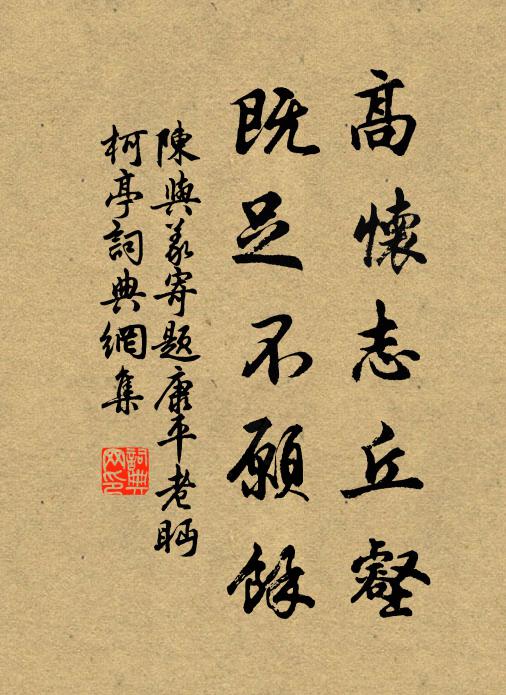 高懷志丘壑
既足不願餘
陳與義寄題康平老眄
柯亭詞典網集
詞典
网印